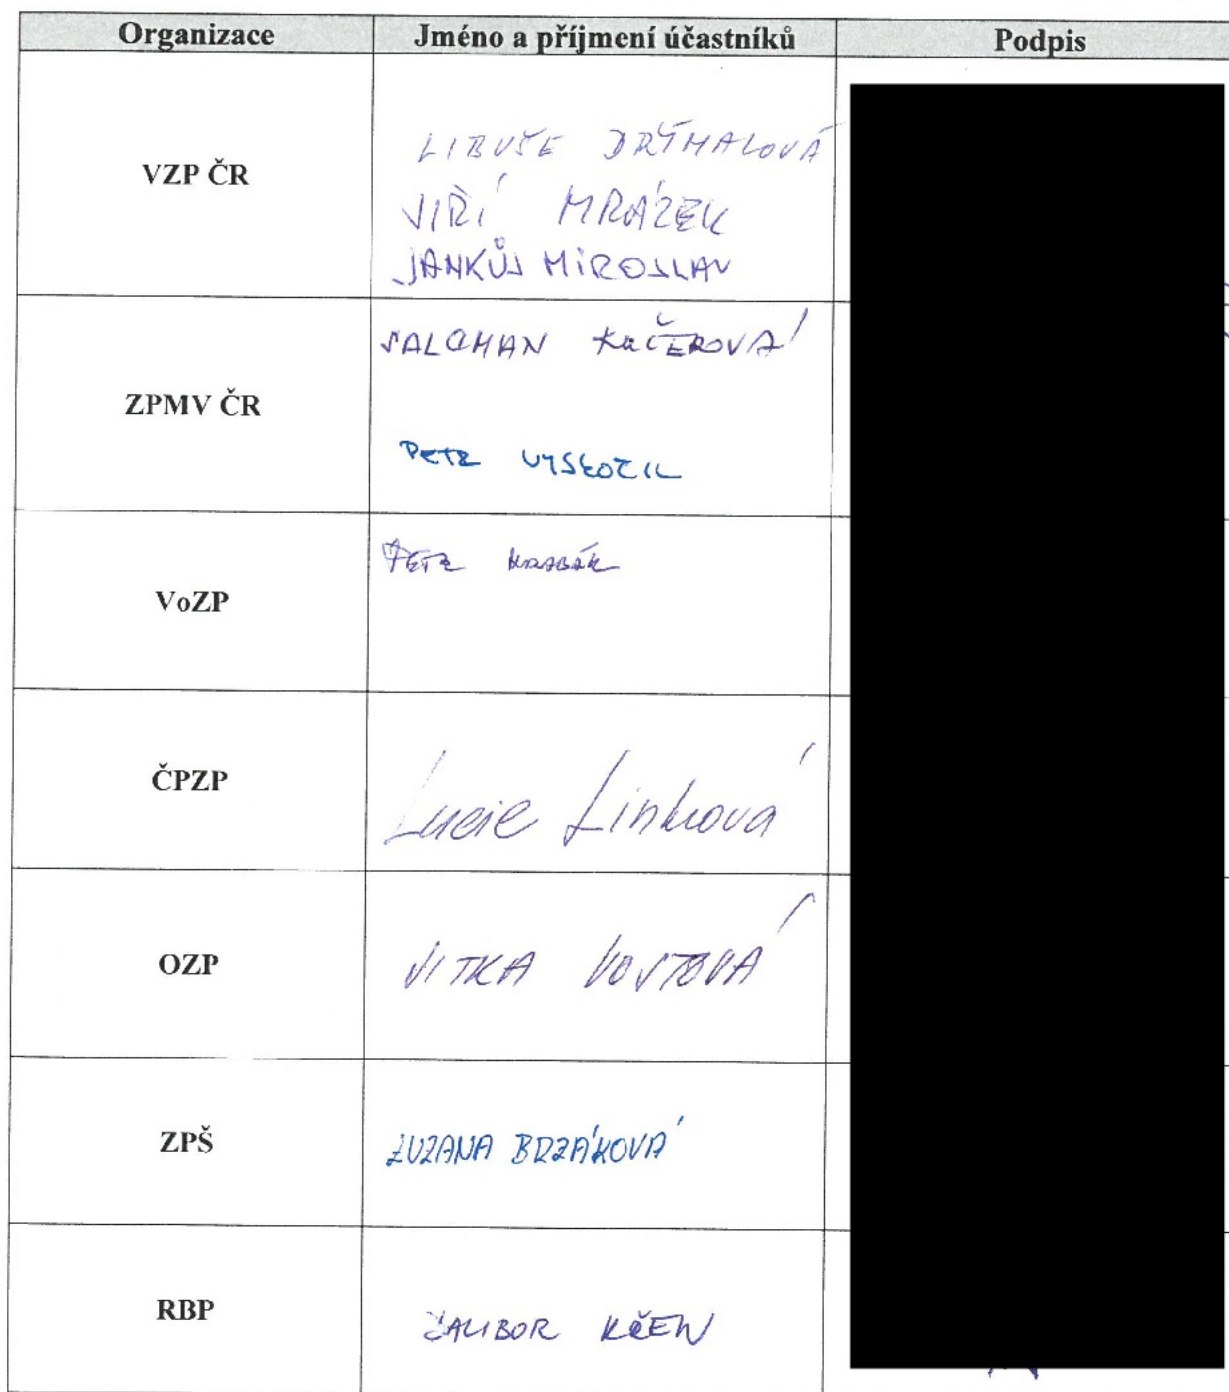 Organizace Jméno a příjmení účastníků Podpis
VZP ČR
LIBUŠE DRÝMALOVÁ
JIŘÍ MRÁZEK
JANKŮJ MIROSLAV
ZPMV ČR
KUČEROVÁ
PETR VYSKOČIL
VoZP
PETR HRABÁK
ČPZP
Lucie Linková
OZP
JITKA VOJTOVÁ
ZPŠ
ZUZANA BRZÁKOVÁ
RBP
DALIBOR KŘEN